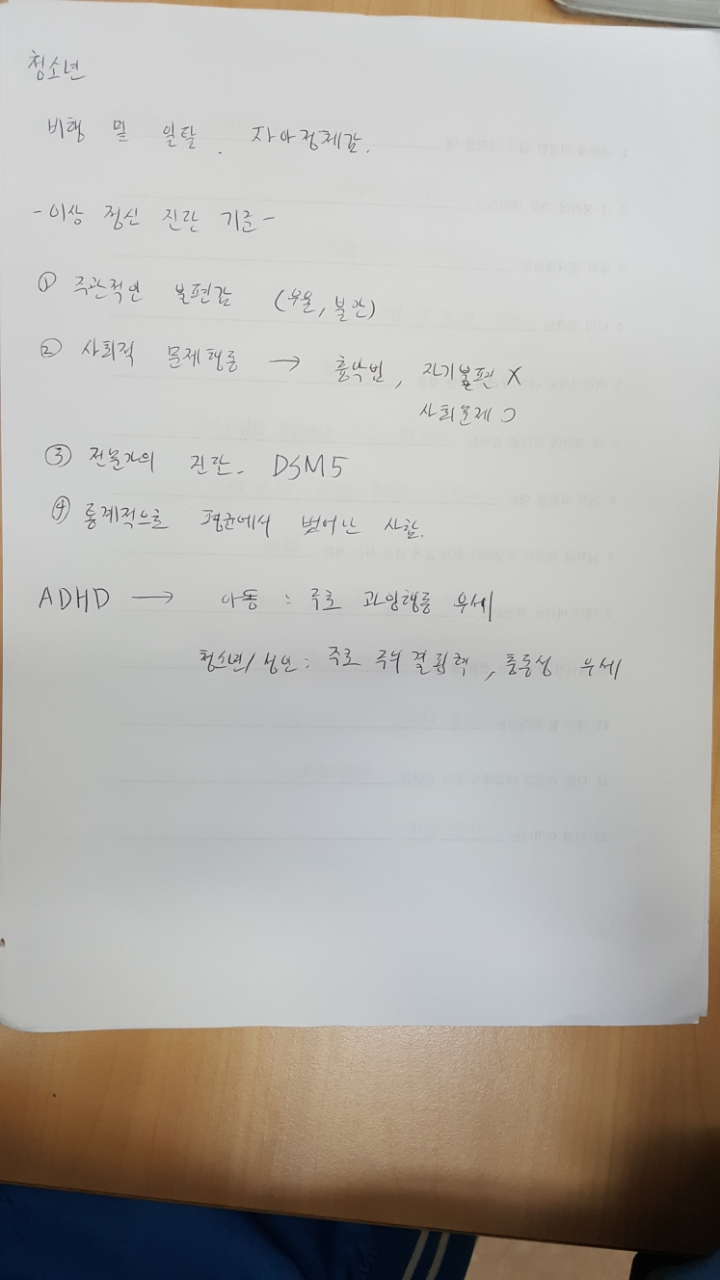 청소년
비행 및 일탈. 자아정체감.
-이상 정신 진단 기준-
① 주관적인 불편감 (우울, 불안)
② 사회적 문제행동 → 흉악범, 자기불편 X
사회문제 O
③ 전문가의 진단. DSM5
④ 통계적으로 평균에서 벗어난 사람.
ADHD → 아동 : 주로 과잉행동 우세
청소년/성인 : 주로 주의결핍력, 충동성 우세